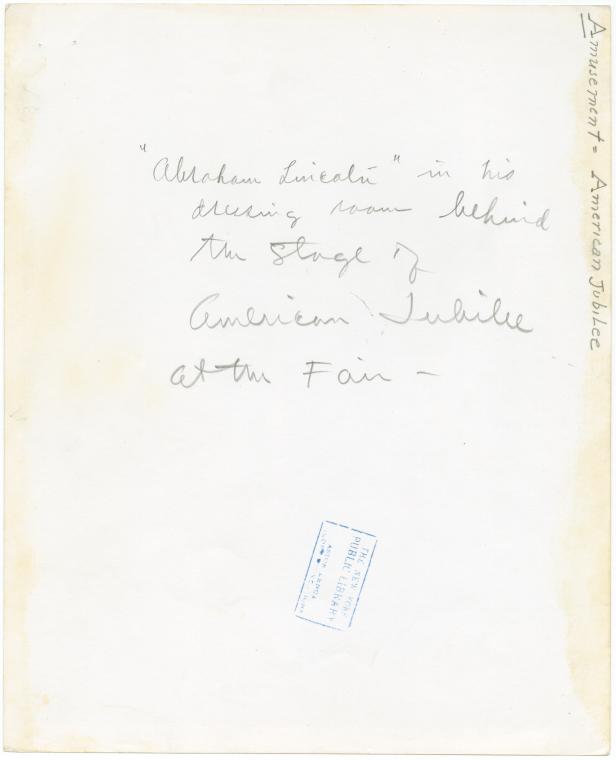 "Abraham Lincoln" in his
dressing room behind
the stage of
American Jubilee
at the Fair –
Amusement = American Jubilee
THE NEW YORK
PUBLIC LIBRARY
ASTOR LENOX